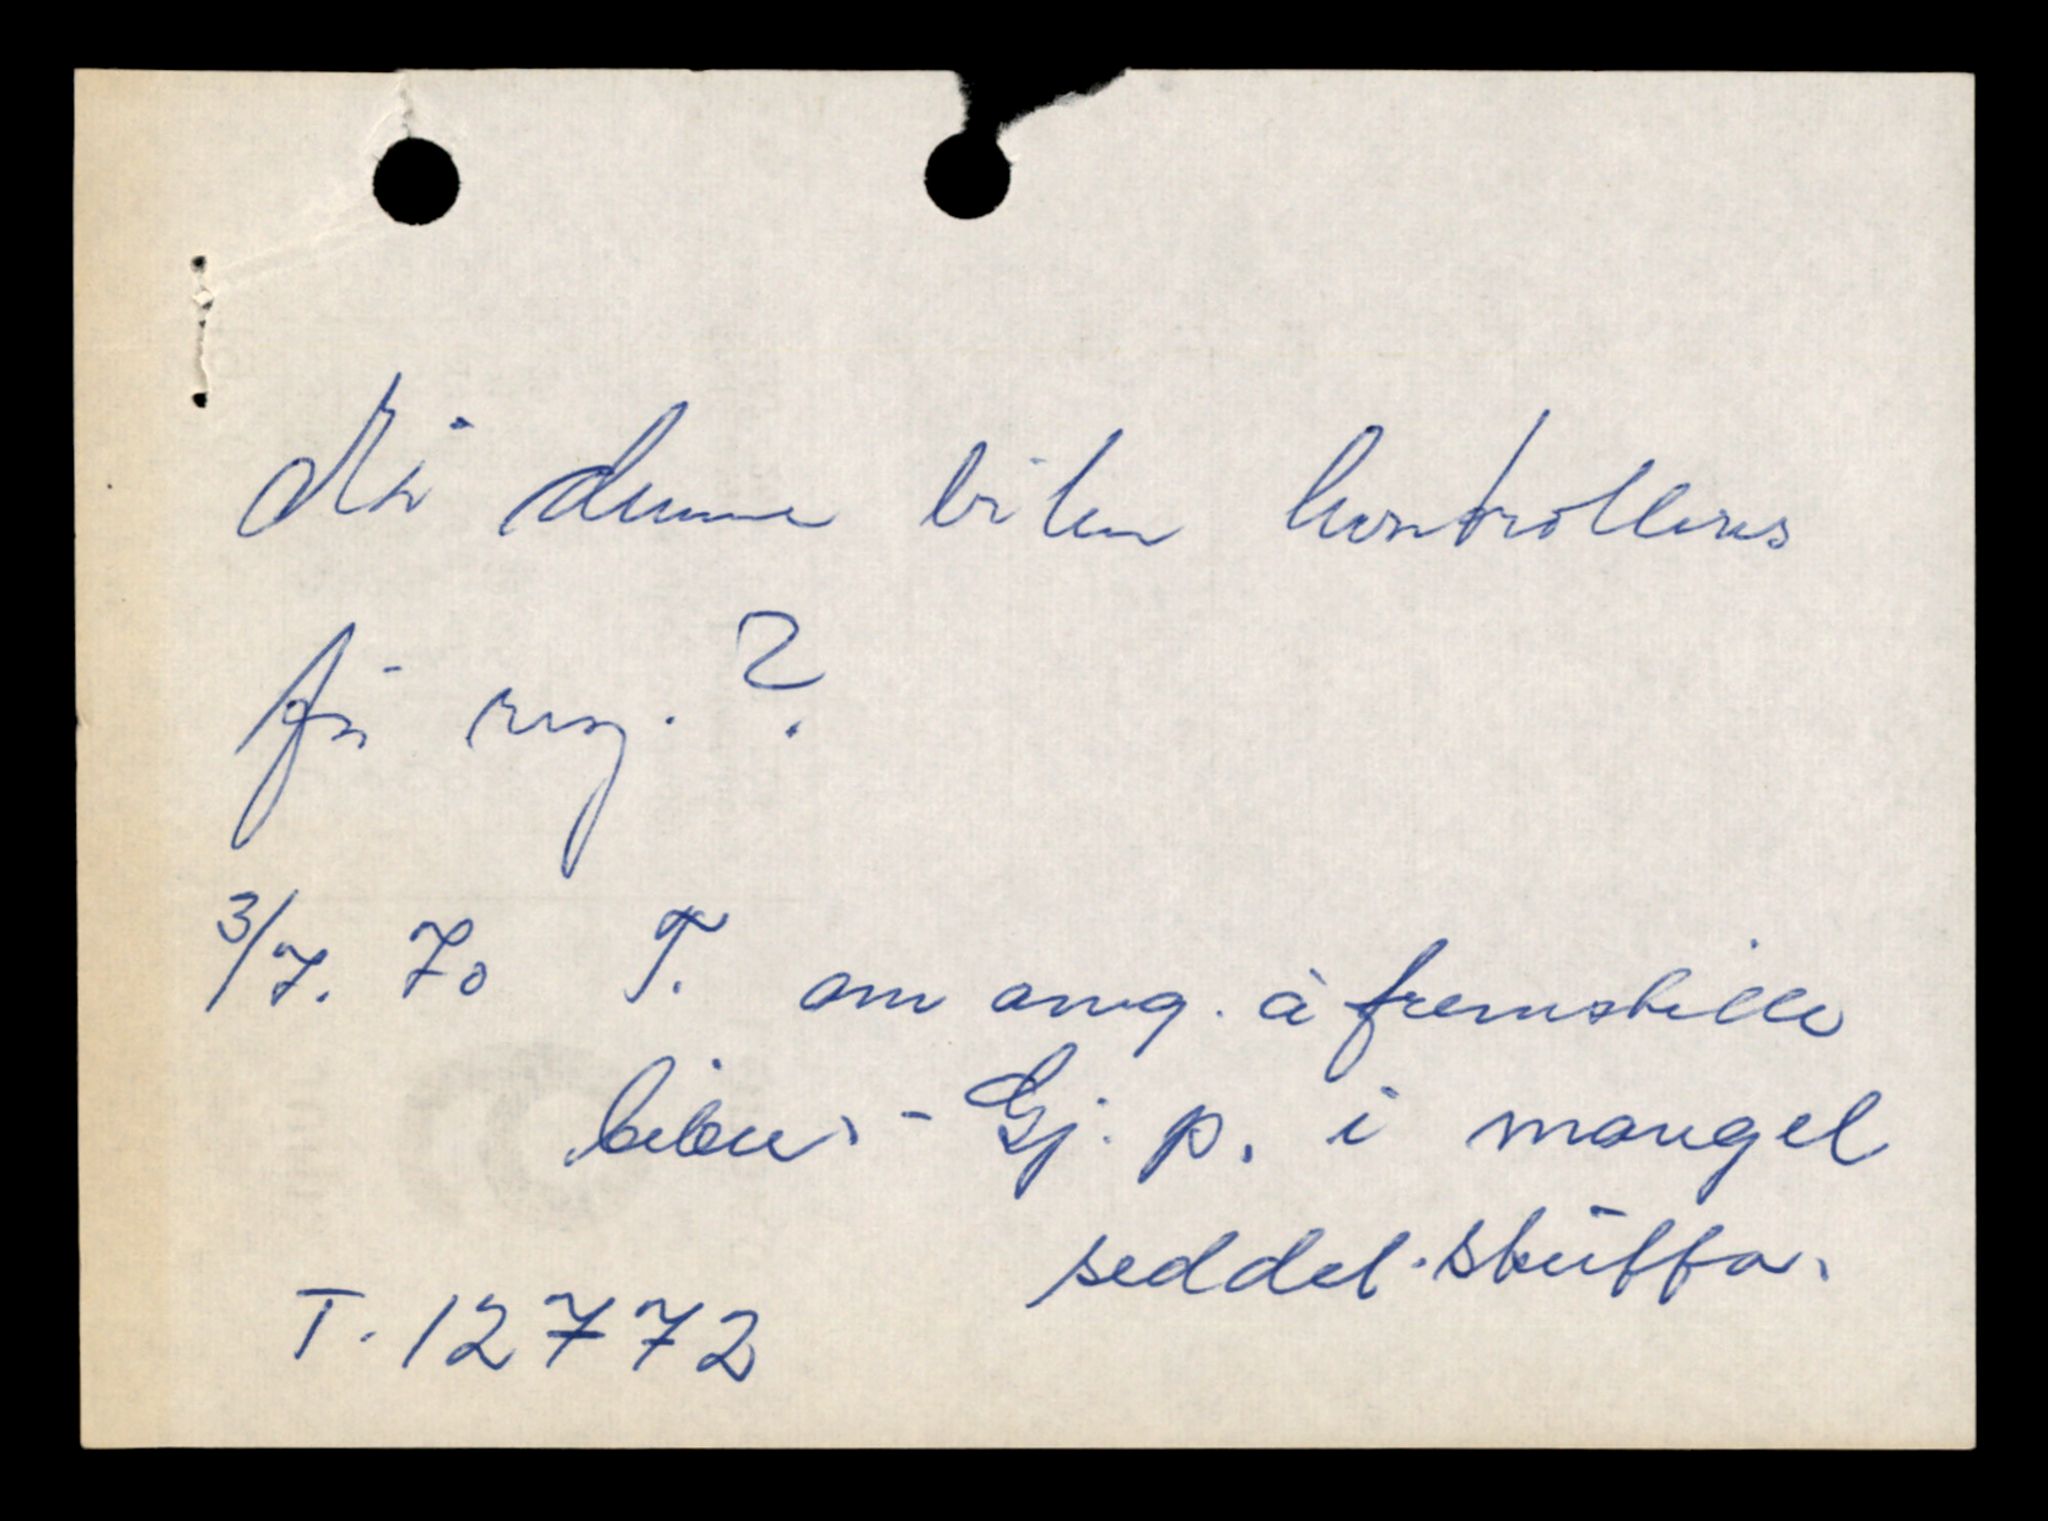 Må denne bilen kontrolleres
før reg.?
3/7. 70 T. om ang. å fremstille
bilen. - Gj. p. i mangel
seddel-skuffa.
T. 12772